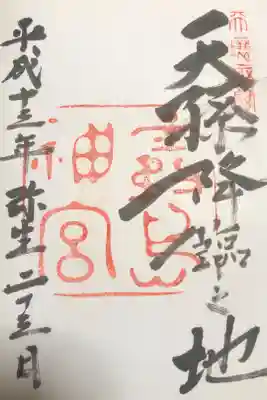 天孫降臨之地
霧島
神宮
平成十三年 弥生 二十三日